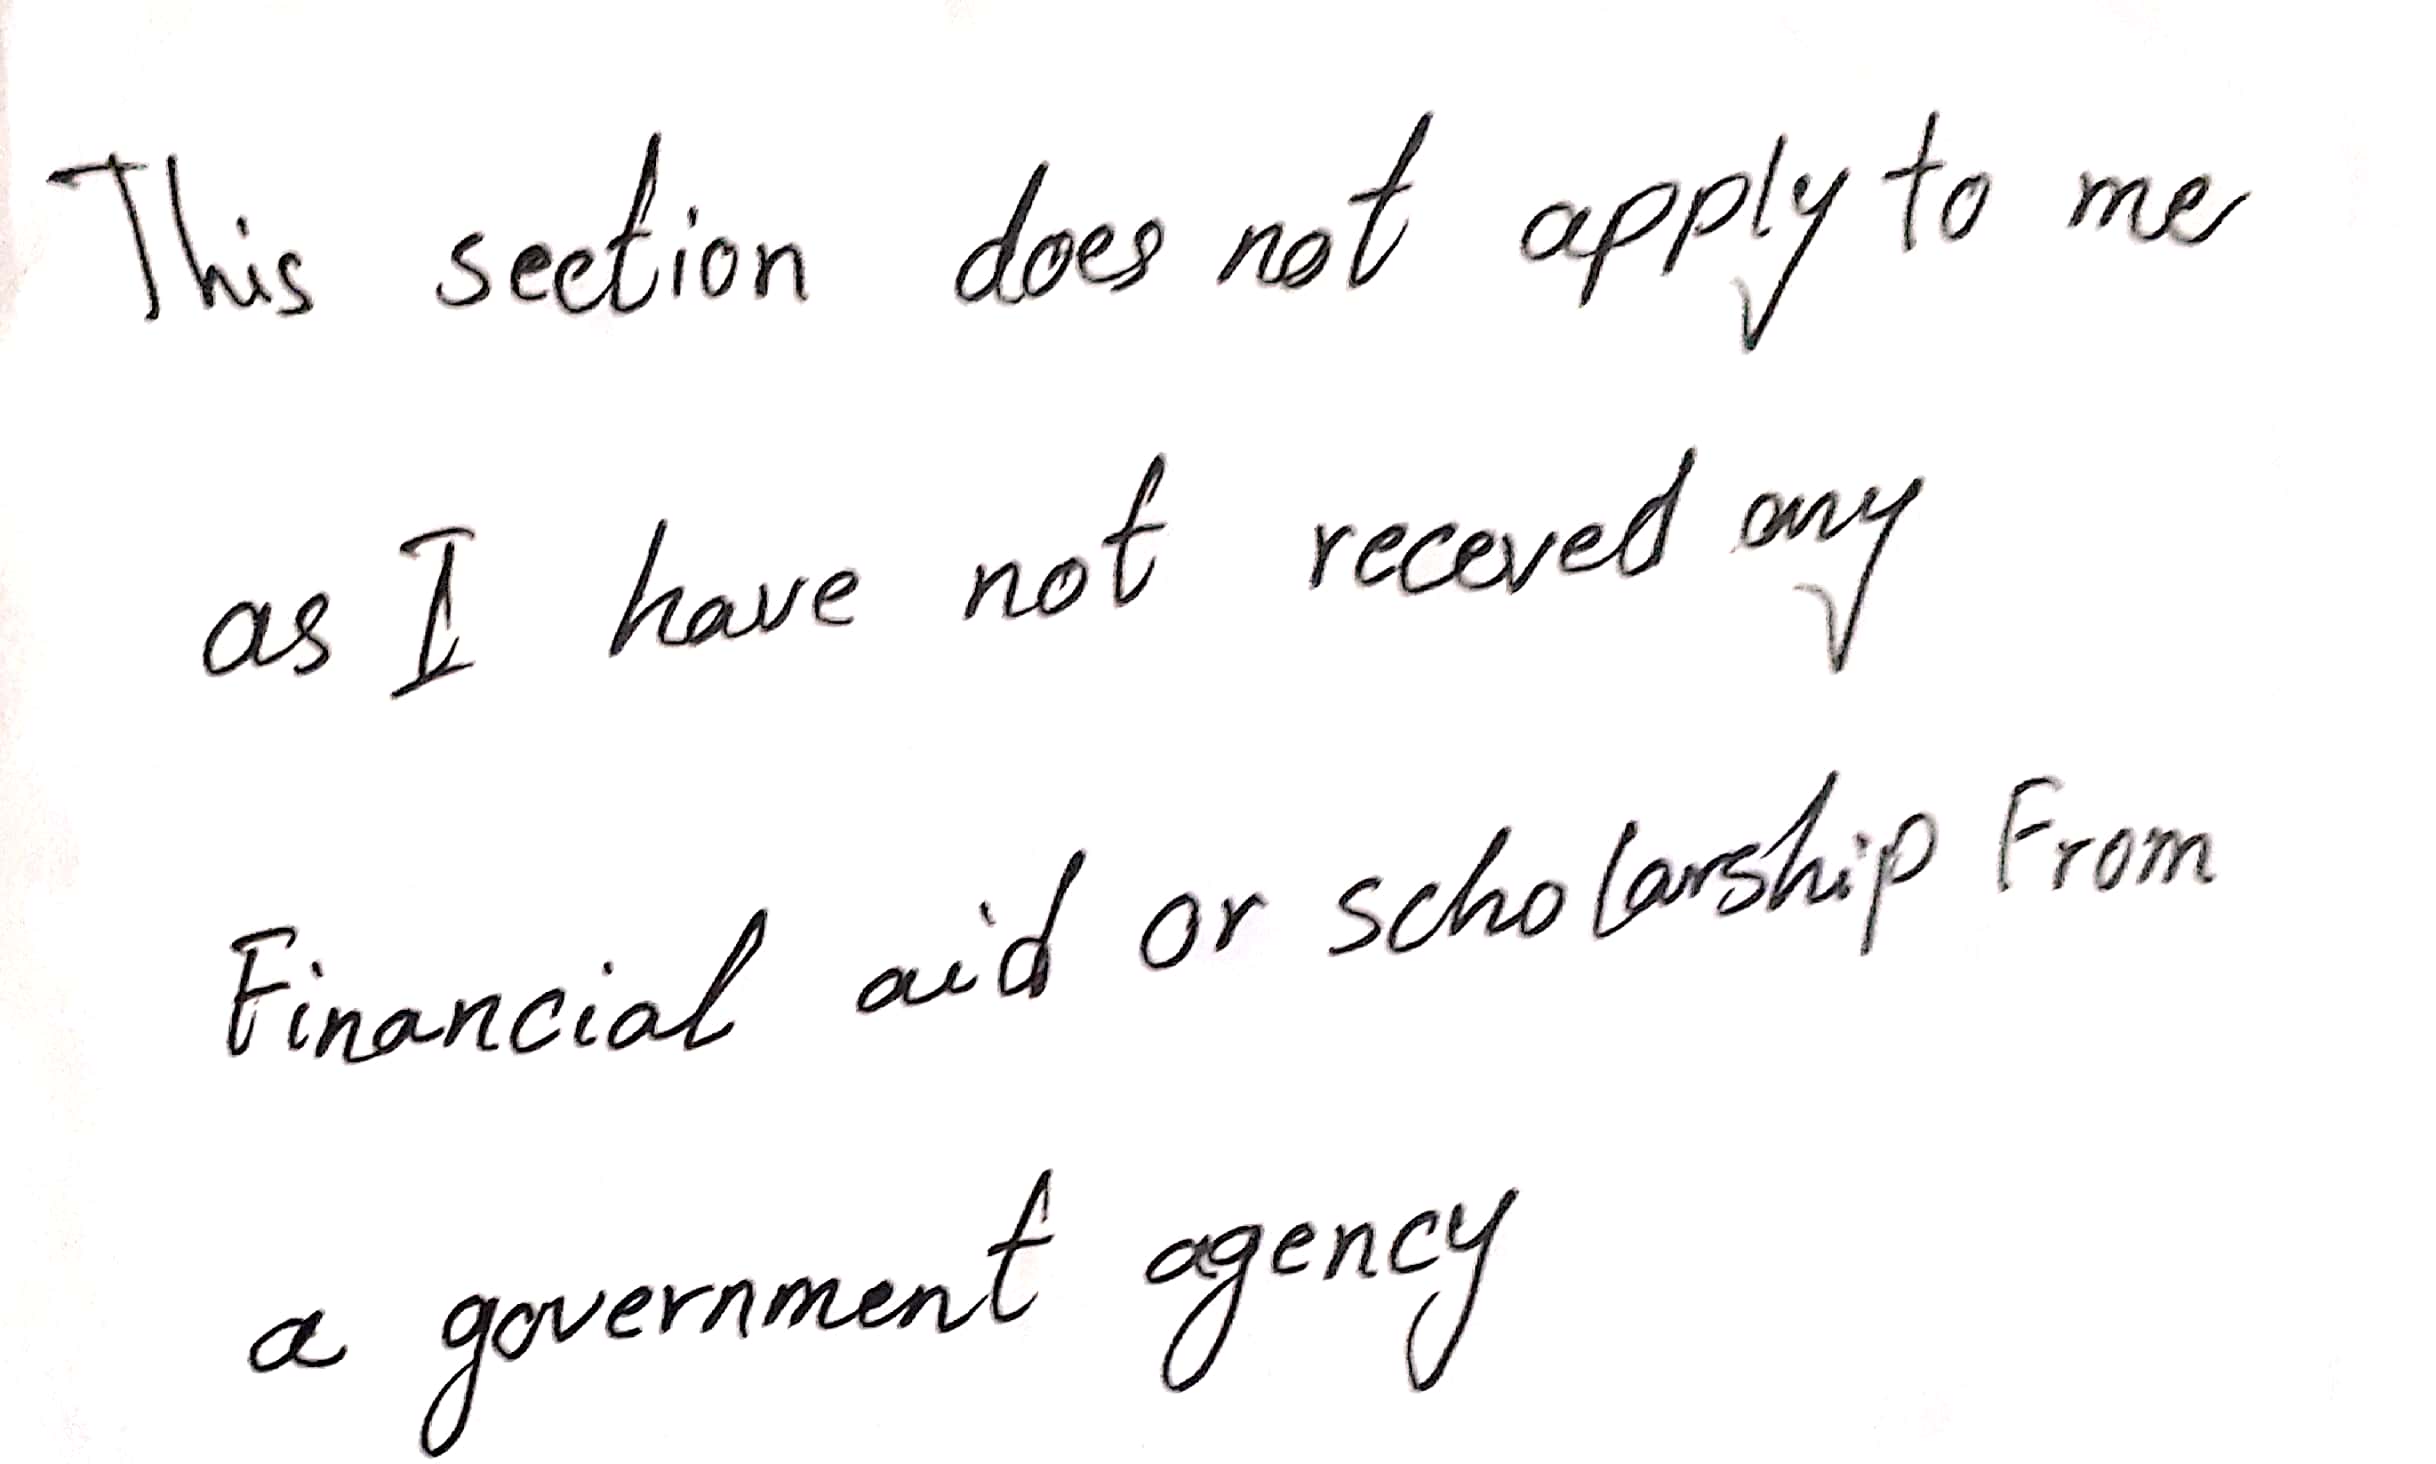 This section does not apply to me
as I have not receved any
Financial aid or scholarship From
a government agency